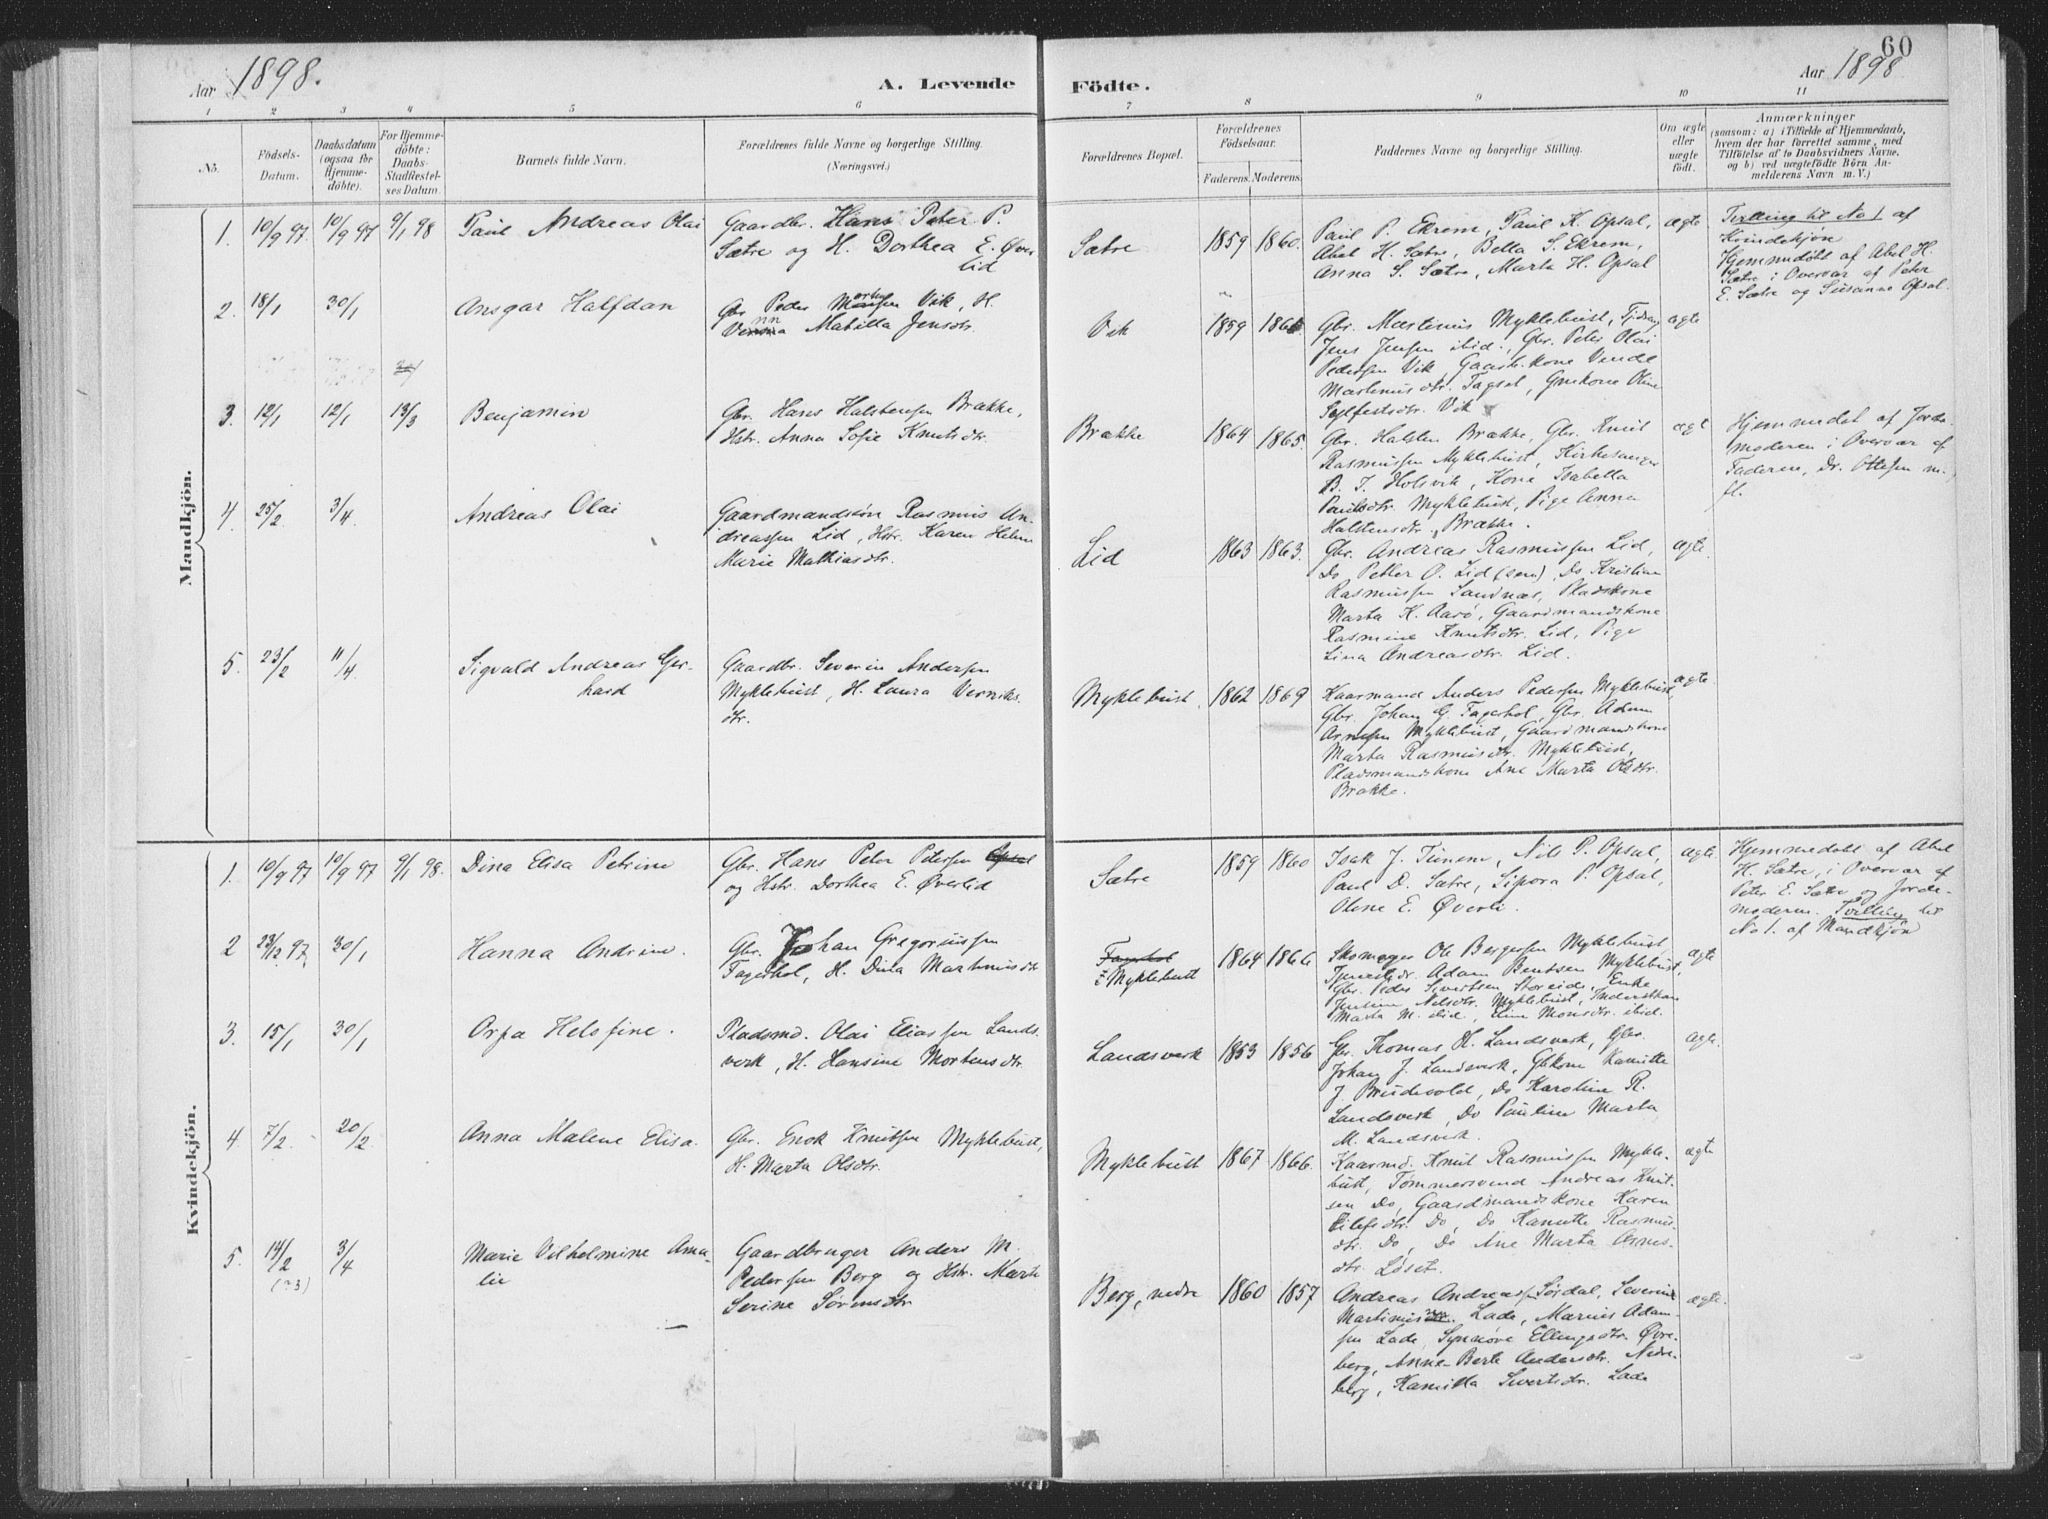 60
Aar 1898.
A. Levende
Födte.
Aar 1898
1 2 3 4 5 6 7 8 9 10 11
No.
Födsels-
Datum.
Daabsdatum
(ogsaa för
Hjemme-
döbte).
For Hjemme-
döbte:
Daabs-
Stadfæstel-
ses Datum.
Barnets fulde Navn.
Forældrenes fulde Navne og borgerlige Stilling.
(Næringsvei.)
Forældrenes Bopæl.
Forældrenes
Födselsaar.
Faderens. Moderens.
Faddernes Navne og borgerlige Stilling.
Om ægte
eller
uægte
født.
Anmærkninger
(saasom: a) i Tilfælde af Hjemmedaab,
hvem der har forrettet samme, med
Tilföielse af to Daabsvidners Navne,
og b) ved uægtefödte Börn An-
melderens Navn m. V.)
Mandkjön.
1. 10/9 97 10/9 97 9/1 98
Paul Andreas Olai
Gaardbr. Hans Peter P.
Sætre og H. Dorthea E. Øver
lid
Sætre 1859 1860.
Paul P. Ekrem, Paul K. Opsal,
Abel H. Sætre, Bella S. Ekrem,
Anna S. Sætre, Marta H. Opsal
ægte
Tvilling til No 1 af
Kvindekjøn
Hjemmedøbt af Abel H.
Sætre i Overvær af Peter
E. Sætre og Susanne Opsal.
2. 18/1 30/1
Ansgar Halfdan
Gbr Peder Vik, H.
Mabilla Jensdtr.
Vik 1859
Gbr. Martinus Myklebust,
Jens Jensen ibid., Gbr. Peter Olai
Pedersen Vik, Gaardb.kone Vendel
Martinusdtr. Fagset, Gmkone Oline
Sylfestsdtr. Vik
ægte
3. 12/1 12/1 13/3
Benjamin
Gbr. Hans Halstensen Brække,
Hstr. Anna Sofie Knutsdtr.
Brække 1864 1865.
Gbr. Halsten Brække, Gbr. Knut
Rasmussen Myklebust, Kirkesanger
B. J. Holsvik, Kone Isabella
Paulsdtr. Myklebust, Pige Anna
Halstensdtr. Brække.
ægt
Hjemmedøbt af Jorde-
moderen i Overvær af
Faderen, Dr. Ottesen m.
fl.
4. 25/2 3/4.
Andreas Olai
Gaardmandssøn Rasmus An-
dreassen Lid, Hstr. Karen Helene
Marie Mathiasdtr.
Lid 1863 1863.
Gbr. Andreas Rasmussen Lid,
Do Petter O. Lid (sen), Do Kristian
Rasmussen Sandnæs, Pladskone
Marta K. Aarø, Gaardmandskone
Rasmine Knutsdtr. Lid, Pige
Lina Andreasdtr. Lid.
ægte.
5. 23/2 11/4.
Sigvald Andreas Ger-
hard
Gaardbr. Severin Andersen
Myklebust, H. Laura Verniks-
dtr.
Myklebust. 1862 1869
Kaarmand Anders Pedersen Myklebust,
Gbr. Johan G. Fagerhol, Gbr. Adam
Arnesen Myklebust, Gaardmandskone
Marta Rasmusdtr. Myklebust,
Pladsmandskone Ane Marta Olsdtr.
Brække.
ægte.
Kvindekjön.
1. 10/9 97 10/9 97 9/1 98.
Dina Elisa Petrine
Gbr. Hans Peter Petersen Opsal
og Hstr. Dorthea E. Øverlid
Sætre 1859 1860
Isak J. Tunem, Nils P. Opsal,
Paul D. Sætre, Sipora P. Opsal,
Oline E. Øverli.
ægte
Hjemmedøbt af Abel
H. Sætre, i Overvær af
Peter E. Sætre og Jorde-
moderen. Tvilling til
No 1. af Mandkjøn
2 23/12 97. 30/1
Hanna Andrine.
Gbr. Johan Gregoriussen
Fagerhol, H. Dina Martinusdtr
Fagerhol
Myklebust 1864 1866
Skomager Ole Bergersen Myklebust
Tjenestedr. Adam Bentsen Myklebust,
Gbr. Peder Sivertsen Storeide, Enke
Jensine Nilsdtr. Myklebust,
Marta M. ibid, Eline Monsdtr. ibid.
ægte
3. 15/1 30/1
Orpa Helsfine.
Pladsmd. Olai Eliassen Lands-
verk, H. Hansine Mortensdtr.
Landsverk 1853 1856
Gbr. Thomas H. Landsverk, Gbr.
Johan J. Landsverk, Gbkone Kanutte
J. Brudevold, Do Karoline R.
Landsverk, Do Pauline Marta
M. Landsverk.
ægte.
4 7/2. 20/2
Anna Malene Elisa.
Gbr. Enok Knutsen Myklebust,
H. Marta Olsdtr.
Myklebust 1867 1866.
Kaarmd. Knut Rasmussen Mykle-
bust, Tømmersvend Andreas Knut-
sen Do, Gaardmandskone Karen
Eilefsdtr. Do, Do Kanutte Rasmus-
dtr. Do, Do Ane Marta Arnes-
dtr. Løset.
ægte
5. 14/2 3/4
(23)
Marie Vilhelmine Ama-
lie
Gaardbruger Anders M.
Pedersen Berg og Hstr. Marte
Serine Sørensdtr
Berg, nedre 1860 1857
Andreas Andreassen Sørdal, Severine
Martinus Lade, Marius Adam-
sen Lade, Synnøve Ellingsdtr. Øvre-
berg, Anne-Berte Andersdtr. Nedre-
berg, Kamilla Sivertsdtr. Lade
ægte.